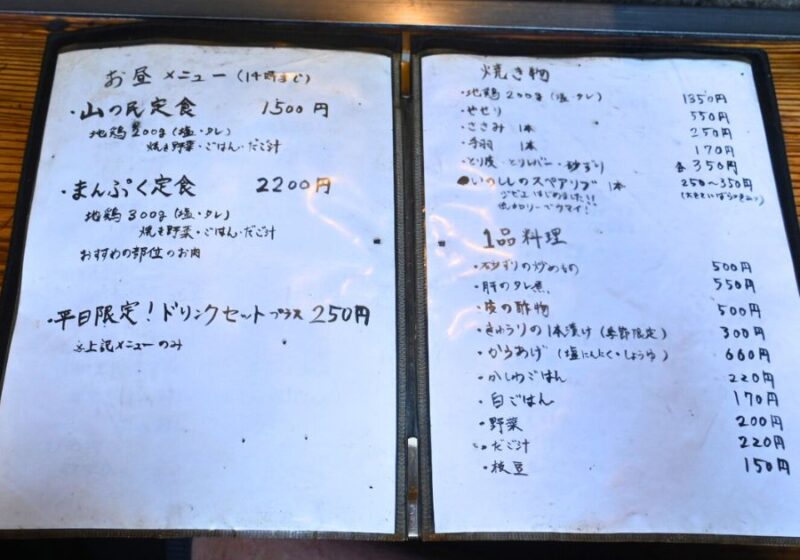 お昼メニュー(14時まで)
・山の民定食 1500円
地鶏200g(塩・タレ)
焼き野菜・ごはん・だご汁
・まんぷく定食 2200円
地鶏300g(塩・タレ)
焼き野菜・ごはん・だご汁
おすすめの部位のお肉
・平日限定!ドリンクセットプラス250円
※上記メニューのみ
焼き物
・地鶏200g(塩・タレ) 1350円
・せせり 550円
・ささみ 1本 250円
・手羽 1本 170円
・とり皮・とりレバー・砂ずり 各350円
・いのししのスペアリブ 1本 250〜350円
ジビエはじめました!!(大きさにばらつきあり)
低カロリーでウマイ!
1品料理
・砂ずりの炒めもの 500円
・肝のタレ煮 550円
・皮の酢物 500円
・きゅうりの1本漬け(季節限定) 300円
・からあげ(塩にんにく・しょうゆ) 660円
・かしわごはん 220円
・白ごはん 170円
・野菜 200円
・だご汁 220円
・枝豆 150円